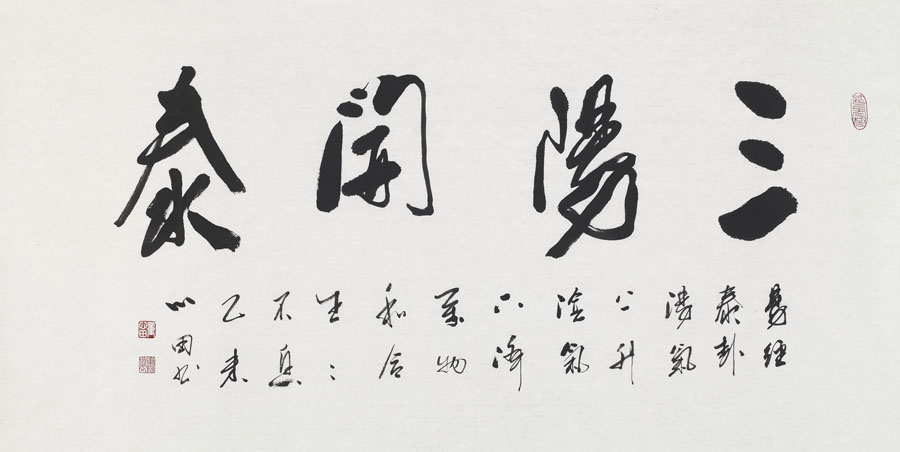 三陽開泰
易經
泰卦
陽氣
上升
陰氣
下濟
萬物
和合
生：
不息
乙未
心田书